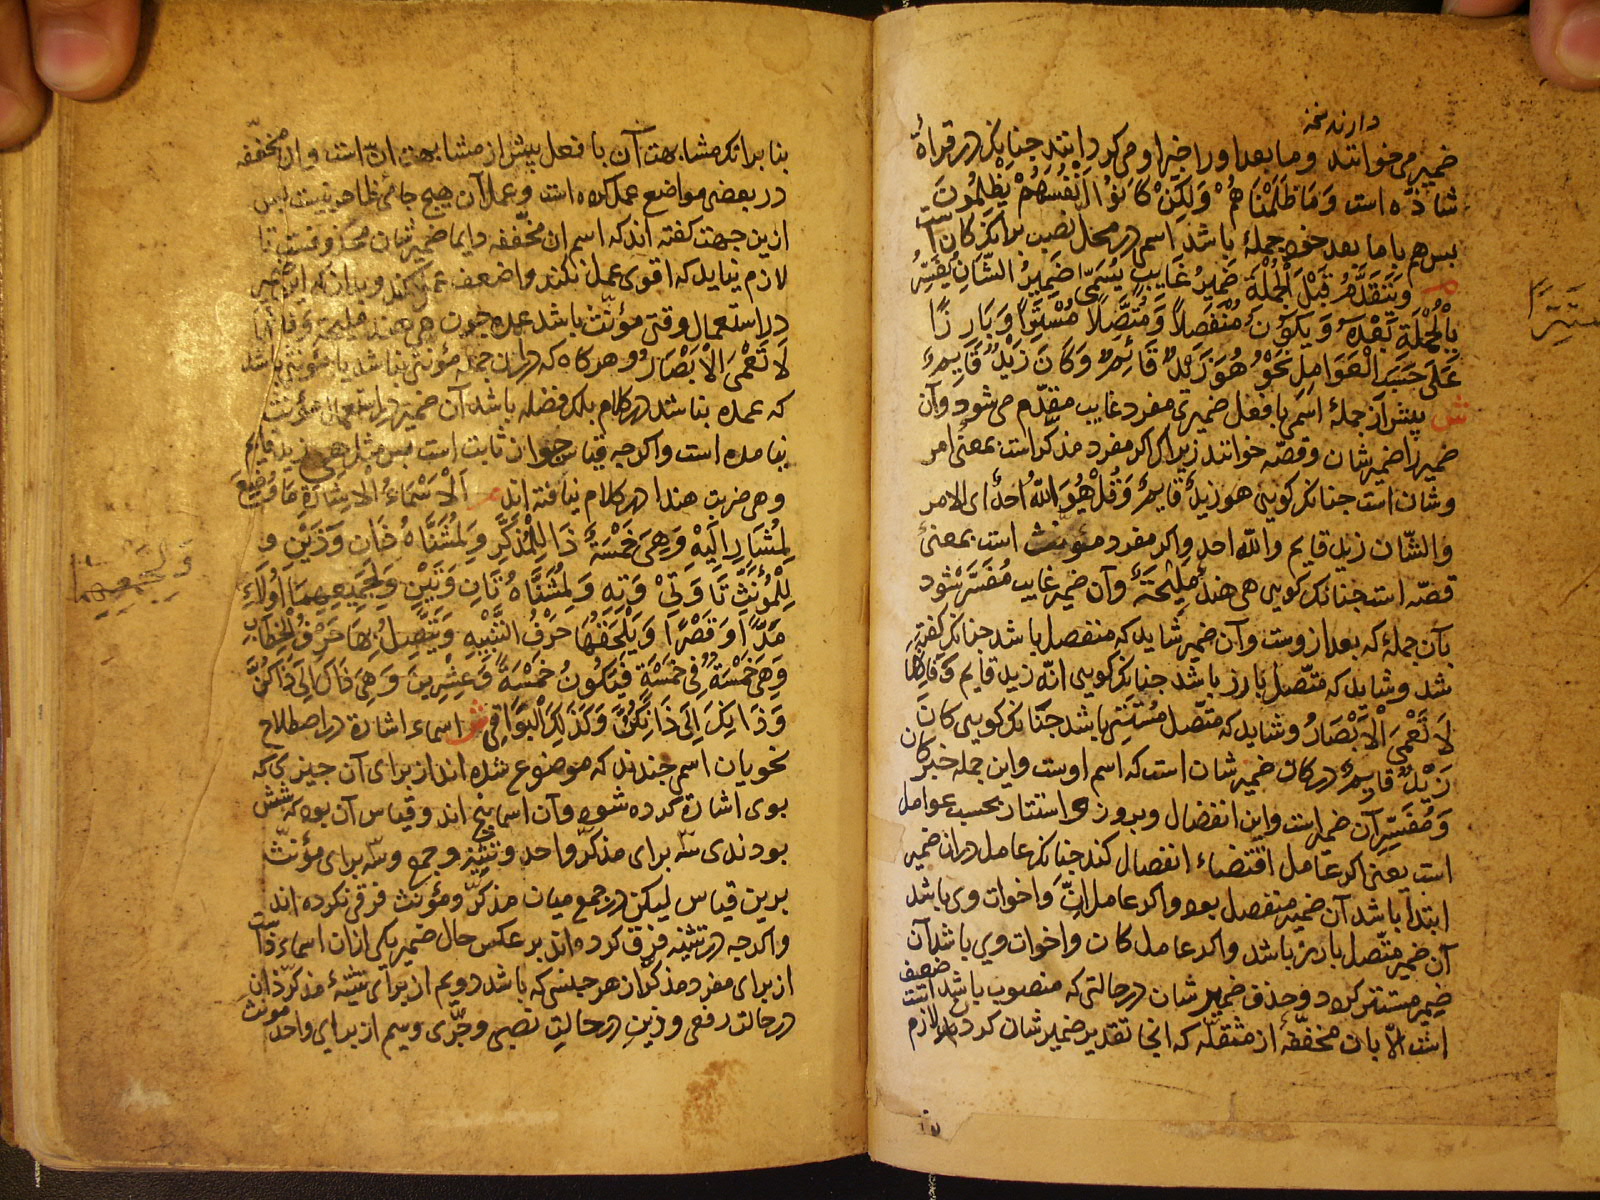 دارند نحه
ضمیر می خوانند و ما بعد او را خبر او می کردانند چنانکه در قراءة
شاذه است وَمَا ظَلَمْنَاهُمْ وَلَكِنْ كَانُوا أَنْفُسُهُمْ يَظْلِمُونَ
پس هم با ما بعد خود جملهٔ باشد اسم در محل نصب برانکه کان است
م وَيَتَقَدَّمُ قَبْلَ الْجُمْلَةِ ضَمِيرُ غَايِبٍ يُسَمّى ضَمِيرُ الشَّانِ يُفَسَّرُ
بِالْجُمْلَةِ بَعْدَهُ وَيَكُونُ مُنْفَصِلًا وَمُتَّصِلًا مُسْتَتِرًا وَبَارِزًا
عَلَى حَسَبِ الْعَوَامِلِ نَحْوُ هُوَ زَيْدٌ قَائِمٌ وَكَانَ زَيْدٌ قَايِمٌ
ش پیش از جملهٔ اسمی یا فعل ضمیری مفرد غایب مقدّم می شود و آن
ضمیر را ضمیر شان و قصّه خوانند زیرا که اکر مفرد مذکر است بمعنی امر
و شان است چنانکه کویی هو زیدٌ قایمٌ وَقُلْ هُوَ اللهُ أحدٌ ای الامر
والشّان زید قایم والله احد و اکر مفرد مؤنث است بمعنئ
قصّه است چنانکه کویی هی هندٌ مَلِيْحَةٌ و آن ضمیر غایب مُفَسَّر شود
بآن جملهٔ که بعد از وست و آن ضمیر شاید که منفصل باشد چنانکه کفته
شد و شاید که متّصل بارز باشد چنانکه کویی انّه زید قایم وَفَانَّهَا
لَا تَعْمَى الْاَبْصَارُ و شاید که متّصل مُسْتَتِر باشد چنانکه کویی کان
زَيْدٌ قايمٌ در کان ضمیر شان است که اسم اوست و این جمله خبر کان
وَمُفَسِّرِ آن ضمیر است و این انفصال و بروز و استتار بحسب عوامل
است یعنی اکر عامل اقتضاء انفصال کند چنانکه عامل در ان ضمیر
ابتدا باشد آن ضمیر منفصل بود و اکر عامل انّ و اخوات وی باشد
آن ضمیر متّصل بارز باشد و اکر عامل کان و اخوات وی باشد آن
ضمیر مستتر کردد و حذف ضمیر شان در حالتی که منصوب باشد ضعیف است
است الّا بان مخفّفهٔ از مثقّله که انجا تقدیر ضمیر شان کردن لازم
مستترًا
بنا برانکه مشابهت آن با فعل بیش از مشابهت انّ است و ان مخفّفه
در بعضی مواضع عمل کرده است و عمل آن هیچ جائی ظاهر نیست پس
ازین جهت کفته اند که اسم ان مخفّفه دایما ضمیر شان محذوفست تا
لازم نیاید که اقوی عمل نکند و اضعف عمل کند و بدانکه این ضمیر
در استعمال وقتی مؤنّث باشد عمده چون هی هند ملیحة و فانّها
لَا تَعْمَى الْاَبْصَارُ و هرکاه که در ان جمله مؤنثی نباشد یا مؤنثی باشد
که عمده نباشد در کلام بلکه فضله باشد آن ضمیر در استعمال مؤنث
نیامده است و اکرچه قیاس جواز ثابت است پس مثل هی زید قایم
و هی ضربت هندا در کلام نیافته اند م اَلْاَسْمَاءُ الْاِشَارَةِ مَا وُضِعَ
لِمُشَارٍ اِلَيْهِ وَهِيَ خَمْسَةٌ ذَا لِلْمُذَكَّرِ وَلِمُثَنَّاهُ ذَانِ وَذَيْنِ وَ
لِلْمُؤَنَّثِ تَا وَتِيْ وَتِهِ وَلِمُثَنَّاهُ تَانِ وَتَيْنِ وَلِجَمِيعِهِمَا اُولَاءِ
مَدًّا وَقَصْرًا وَيَلْحَقُهَا حَرْفُ التَّنْبِيْهِ وَيَتَّصِلُ بِهَا حَرْفُ الْخِطَابِ
وَهِيَ خَمْسَةٌ فِي خَمْسَةٍ فَيَكُونُ خَمْسَةً وَعِشْرِينَ وَهِيَ ذَاكَ اِلَى ذَاكُنَّ
وَذَانِكَ اِلَى ذَانِكُنَّ وَكَذَلِكَ الْبَوَاقِي ش اسماء اشارة در اصطلاح
نحویان اسم چندند که موضوع شده اند از برای آن چیزی که
بوی اشارة کرده شود و آن اسما پنج اند و قیاس آن بود که شش
بودندی سه برای مذکّر واحد و تثنیه و جمع و سه برای مؤنّث
برین قیاس لیکن در جمع میان مذکّر و مؤنث فرق نکرده اند
و اکرچه در تثنیه فرق کرده اند بر عکس حال ضمیر یکی از ان اسماء ذا است
از برای مفرد مذکّر از هر جنسی که باشد دویم از برای تثنیهٔ مذکّر ذان
در حالت رفعی و ذین در حالت نصبی و جرّی و سیم از برای واحد مونث
ولجمعهما